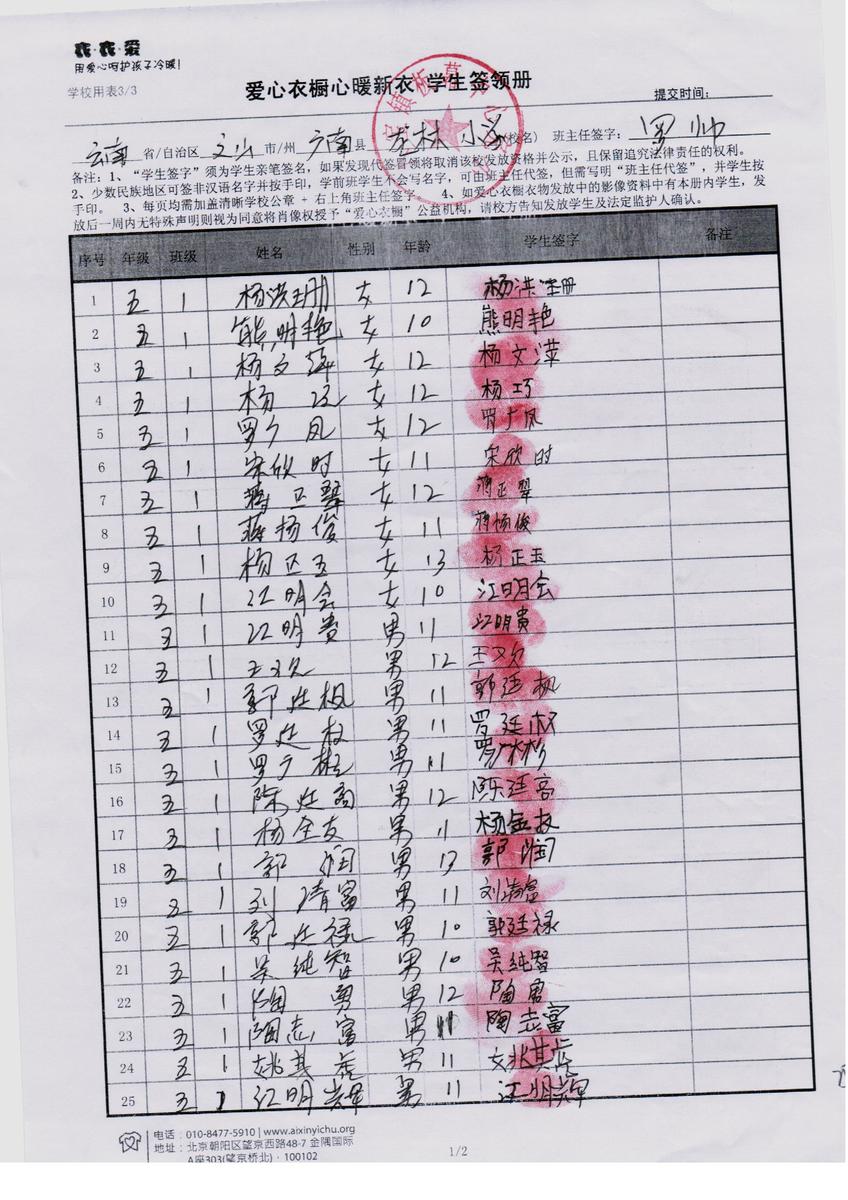 衣·衣·爱
用爱心呵护孩子冷暖!
学校用表3/3
爱心衣橱心暖新衣 学生签领册
提交时间:
云南 省/自治区 文山 市/州 广南 县 龙林小学 (校名) 班主任签字: 罗帅
备注: 1、“学生签字”须为学生亲笔签名, 如果发现代签冒领将取消该校发放资格并公示, 且保留追究法律责任的权利。
2、少数民族地区可签非汉语名字并按手印, 学前班学生不会写名字, 可由班主任代签, 但需写明“班主任代签”, 并学生按
手印。 3、每页均需加盖清晰学校公章 + 右上角班主任签字。 4、如爱心衣橱衣物发放中的影像资料中有本册内学生, 发
放后一周内无特殊声明则视为同意将肖像权授予“爱心衣橱”公益机构, 请校方告知发放学生及法定监护人确认。
序号 年级 班级 姓名 性别 年龄 学生签字 备注
1 五 1 杨洪珊 女 12 杨洪珊
2 五 1 熊明艳 女 10 熊明艳
3 五 1 杨文萍 女 12 杨文萍
4 五 1 杨巧 女 12 杨巧
5 五 1 罗广凤 女 12 罗广凤
6 五 1 宋欣时 女 11 宋欣时
7 五 1 蒋正翠 女 12 蒋正翠
8 五 1 蒋杨俊 女 11 蒋杨俊
9 五 1 杨正玉 女 13 杨正玉
10 五 1 江明会 女 10 江明会
11 五 1 江明贵 男 11 江明贵
12 五 1 王又欠 男 12 王又欠
13 五 1 郭廷枫 男 11 郭廷枫
14 五 1 罗廷权 男 11 罗廷权
15 五 1 罗广彬 男 11 罗广彬
16 五 1 陈廷高 男 12 陈廷高
17 五 1 杨金友 男 11 杨金友
18 五 1 郭润 男 13 郭润
19 五 1 刘清富 男 11 刘清富
20 五 1 郭廷禄 男 10 郭廷禄
21 五 1 吴纯智 男 10 吴纯智
22 五 1 陶勇 男 12 陶勇
23 五 1 陶志富 男 11 陶志富
24 五 1 姚其虎 男 11 姚其虎
25 五 1 江明辉 男 11 江明辉
电话: 010-8477-5910 | www.aixinyichu.org
地址: 北京朝阳区望京西路48-7 金隅国际
A座303(望京桥北) · 100102
1/2